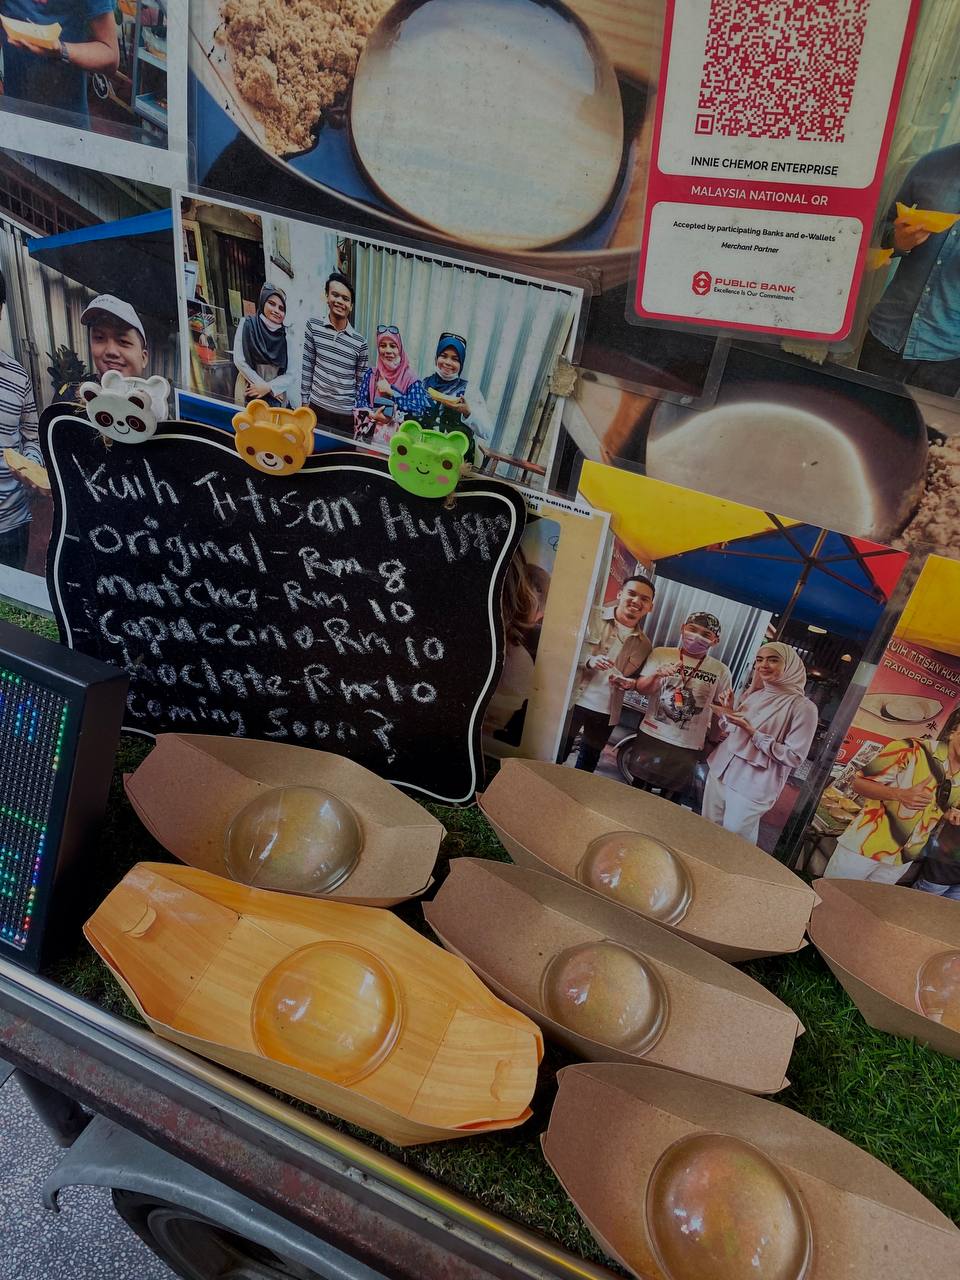 INNIE CHEMOR ENTERPRISE
MALAYSIA NATIONAL QR
Accepted by participating Banks and e-Wallets
Merchant Partner
PUBLIC BANK
Excellence Is Our Commitment
Kuih Titisan Hujan
- Original - Rm 8
- Matcha - Rm 10
- Capuccino - Rm 10
Koclate - Rm 10
Coming Soon?
KUIH TITISAN HUJA
RAINDROP CAKE